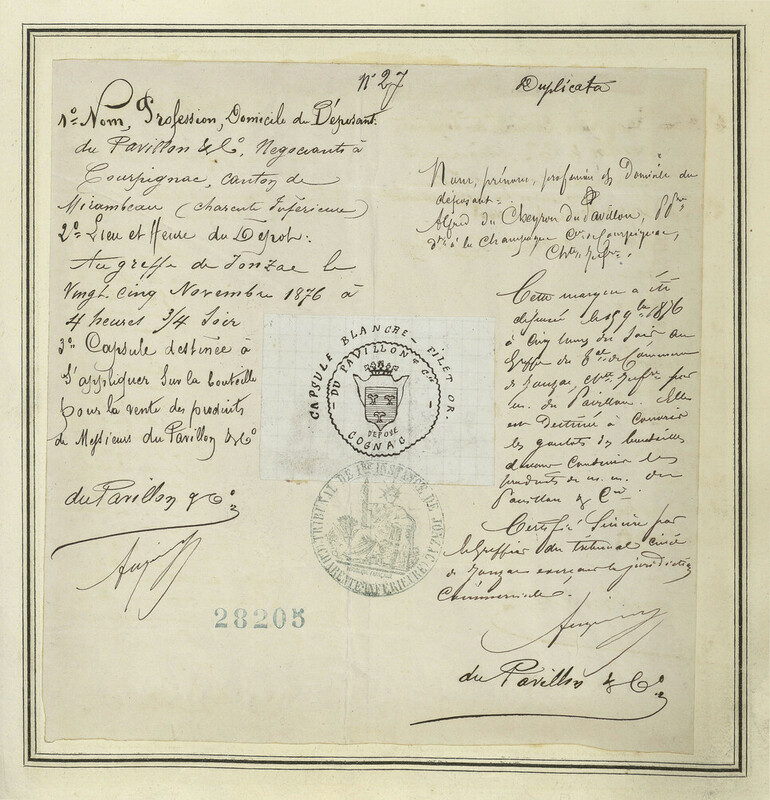 n° 27
Duplicata
1° Nom, Profession, Domicile du Déposant.
du Pavillon & Co, Negociants à
Courpignac, canton de
Mirambeau (charente Inférieure)
2° Lieu et Heure du Dépot:
Au greffe de Jonzac le
Vingt cinq Novembre 1876 à
4 heures 3/4 Soir
3° Capsule destinée à
S'appliquer Sur la bouteille
pour la vente des produits
de Messieurs du Pavillon & Co
du Pavillon & Co
28205
CAPSULE BLANCHE - FILET OR.
- DU PAVILLON & Cie -
DÉPOSÉ
COGNAC
TRIBUNAL DE 1re INSTANCE DE JONZAC
(CHARENTE INFÉRIEURE)
Nom, prénoms, profession et Domicile du
déposant:
Alfred du Cheyron du Pavillon,
à la Champagne Cne de Courpignac,
Chte Infre.
Cette marque a été
déposée le 25 9bre 1876
à Cinq heures du Soir au
Greffe du de Commerce
de Jonzac, Chte Infre par
m. du Pavillon. Elle
est Destinée à Couvrir
les goulots des bouteilles
devant Contenir les
produits de m. m. du
Pavillon & Cie
Certifié Sincère par
le Greffier du tribunal civil
de Jonzac exerçant la juridiction
Commerciale.
du Pavillon & Co